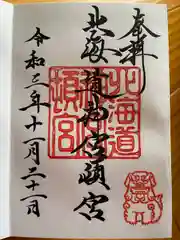 奉拝
北海道神宮頓宮
北海道
神宮
頓宮
令和三年十一月二十一日